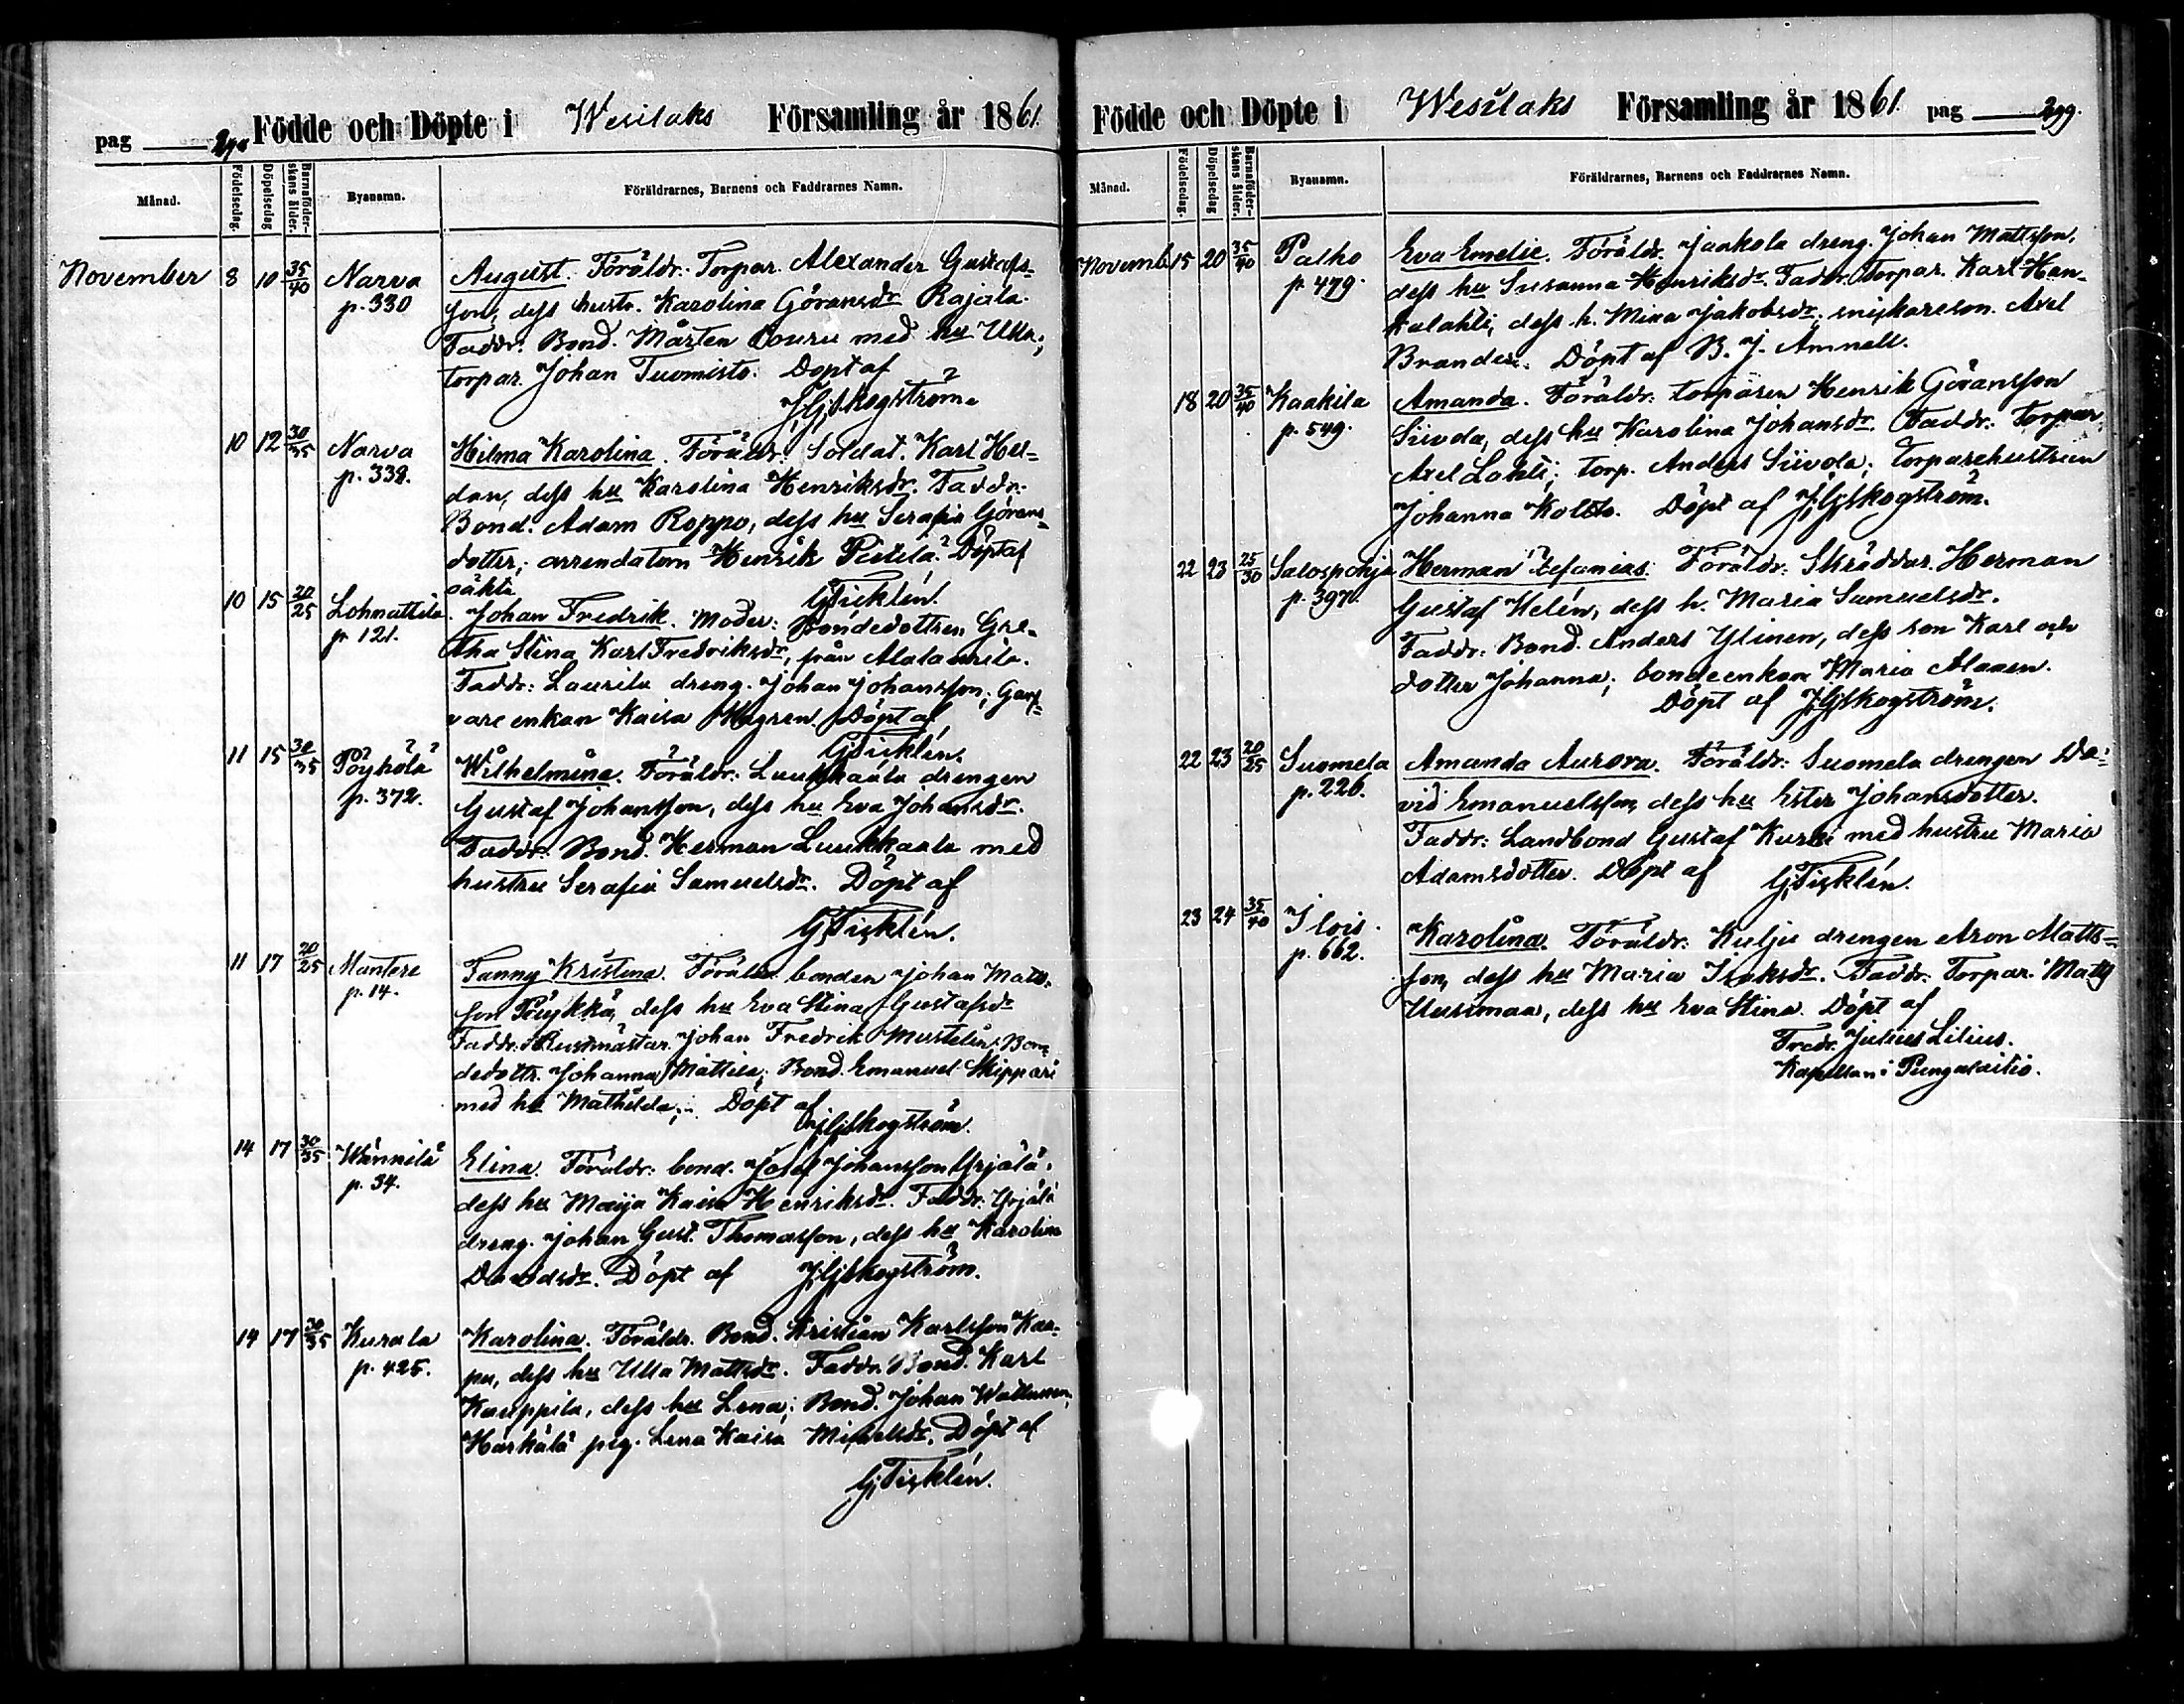 pag Födde och Döpte i Wesilaks Församling år 1861.
Månad. Födelsedag. Döpelsedag Barnaföder-skans ålder. Byanamn. Föräldrarnes, Barnens och Faddrarnes Namn.
November 8 10 35/40 Narva August. Föräldr. Torpar. Alexander Gustafs-
p. 330 son, dess hustr. Karolina Göransdr Rajala.
Faddr. Bond. Mårten Couru med hu Ulla;
torpar. Johan Tuomisto. Döpt af
J.G. Skogström.
10 12 30/35 Narva Hilma Karolina. Föräldr. Soldat. Karl Hel-
p. 338. dan, dess hu Karolina Henriksdr. Faddr.
Bond. Adam Roppo, dess hu Serafia Görans-
dotter; arrendatorn Henrik Pietilä. Döpt af
G. Ticklén.
10 15 20/25 Lohmattila oäkta Johan Fredrik. Moder: Bondedottren Gre-
p. 121. tha Stina Karl Fredriksdr, från Alalaurila.
Faddr: Laurila dreng. Johan Johansson; Garf-
vare enkan Kaisa Döpt af
G. Ticklén.
11 15 30/35 Pöyhölä Wilhelmina. Föräldr: Luukkaala drengen
p. 372. Gustaf Johansson, dess hu Eva Johansdr.
Faddr: Bond. Herman Luukkaala med
hustru Serafia Samuelsdr. Döpt af
G. Ticklén.
11 17 20/25 Mantere Fanny Kristina. Föräldr. bonden Johan Matts-
p. 14. son Pöykkä, dess hu Eva Stina Gustafsdr
Faddr. Rustmästar. Johan Fredrik Mustelin; Bon-
dedottr. Johanna Mattila; Bond. Emanuel Skippari
med hu Mathilda; Döpt af
J.G. Skogström.
14 17 30/35 Wännilä Elina. Föräldr: bond. Josef Johansson Yrjälä.
p. 34. dess hu Maija Kaisa Henriksdr. Faddr. Yrjälä
dreng. Johan Gust. Thomasson, dess hu Karolina
Davidsdr. Döpt af J.G. Skogström.
14 17 30/35 Kurala Karolina. Föräldr. Bond. Kristian Karlsson Kaa-
p. 425. pu, dess hu Ulla Mattsdr. Faddr. Bond. Karl
Kauppila, dess hu Lena; Bond. Johan Wallunen,
Härkälä pig. Lena Kaisa Mickelsdr. Döpt af
G. Ticklén.
Födde och Döpte i Wesilaks Församling år 1861. pag 299.
Månad. Födelsedag. Döpelsedag Barnaföder-skans ålder. Byanamn. Föräldrarnes, Barnens och Faddrarnes Namn.
Novemb. 15 20 35/40 Palho Eva Emelie. Föräldr. Jaakola dreng. Johan Mattsson,
p. 479. dess hu Susanna Henriksdr. Faddr. Torpar. Karl Han-
kalahti, dess h. Mina Jakobsdr; snickareson. Axel
Brander. Döpt af B. J. Amnell.
18 20 35/40 Kaakila Amanda. Föräldr: torparen Henrik Göransson
p. 549. Siivola, dess hu Karolina Johansdr. Faddr: Torpar.
Axel Lahti; torp. Anders Siivola; torparehustrun
Johanna Döpt af J.G. Skogström.
22 23 25/30 Salospohja Herman Zefanias. Föräldr: Skräddar. Herman
p. 397. Gustaf Helén, dess h. Maria Samuelsdr.
Faddr: Bond. Anders Ylinen, dess son Karl och
dotter Johanna; bondeenkan Maria Alanen.
Döpt af J.G. Skogström.
22 23 20/25 Suomela Amanda Aurora. Föräldr: Suomela drengen Da-
p. 226. vid Emanuelsson, dess hu Ester Johansdotter.
Faddr: Landbond Gustaf Kurki med hustru Maria
Adamsdotter. Döpt af G. Ticklén.
23 24 35/40 Ilois. Karolina. Föräldr: Kulju drengen Aron Matts-
p. 662. son, dess hu Maria Isaksdr. Faddr: Torpar. Matts
Uusimaa, dess hu Eva Stina. Döpt af
Fredr. Julius Lilius.
Kapellan i Pungalaitio.